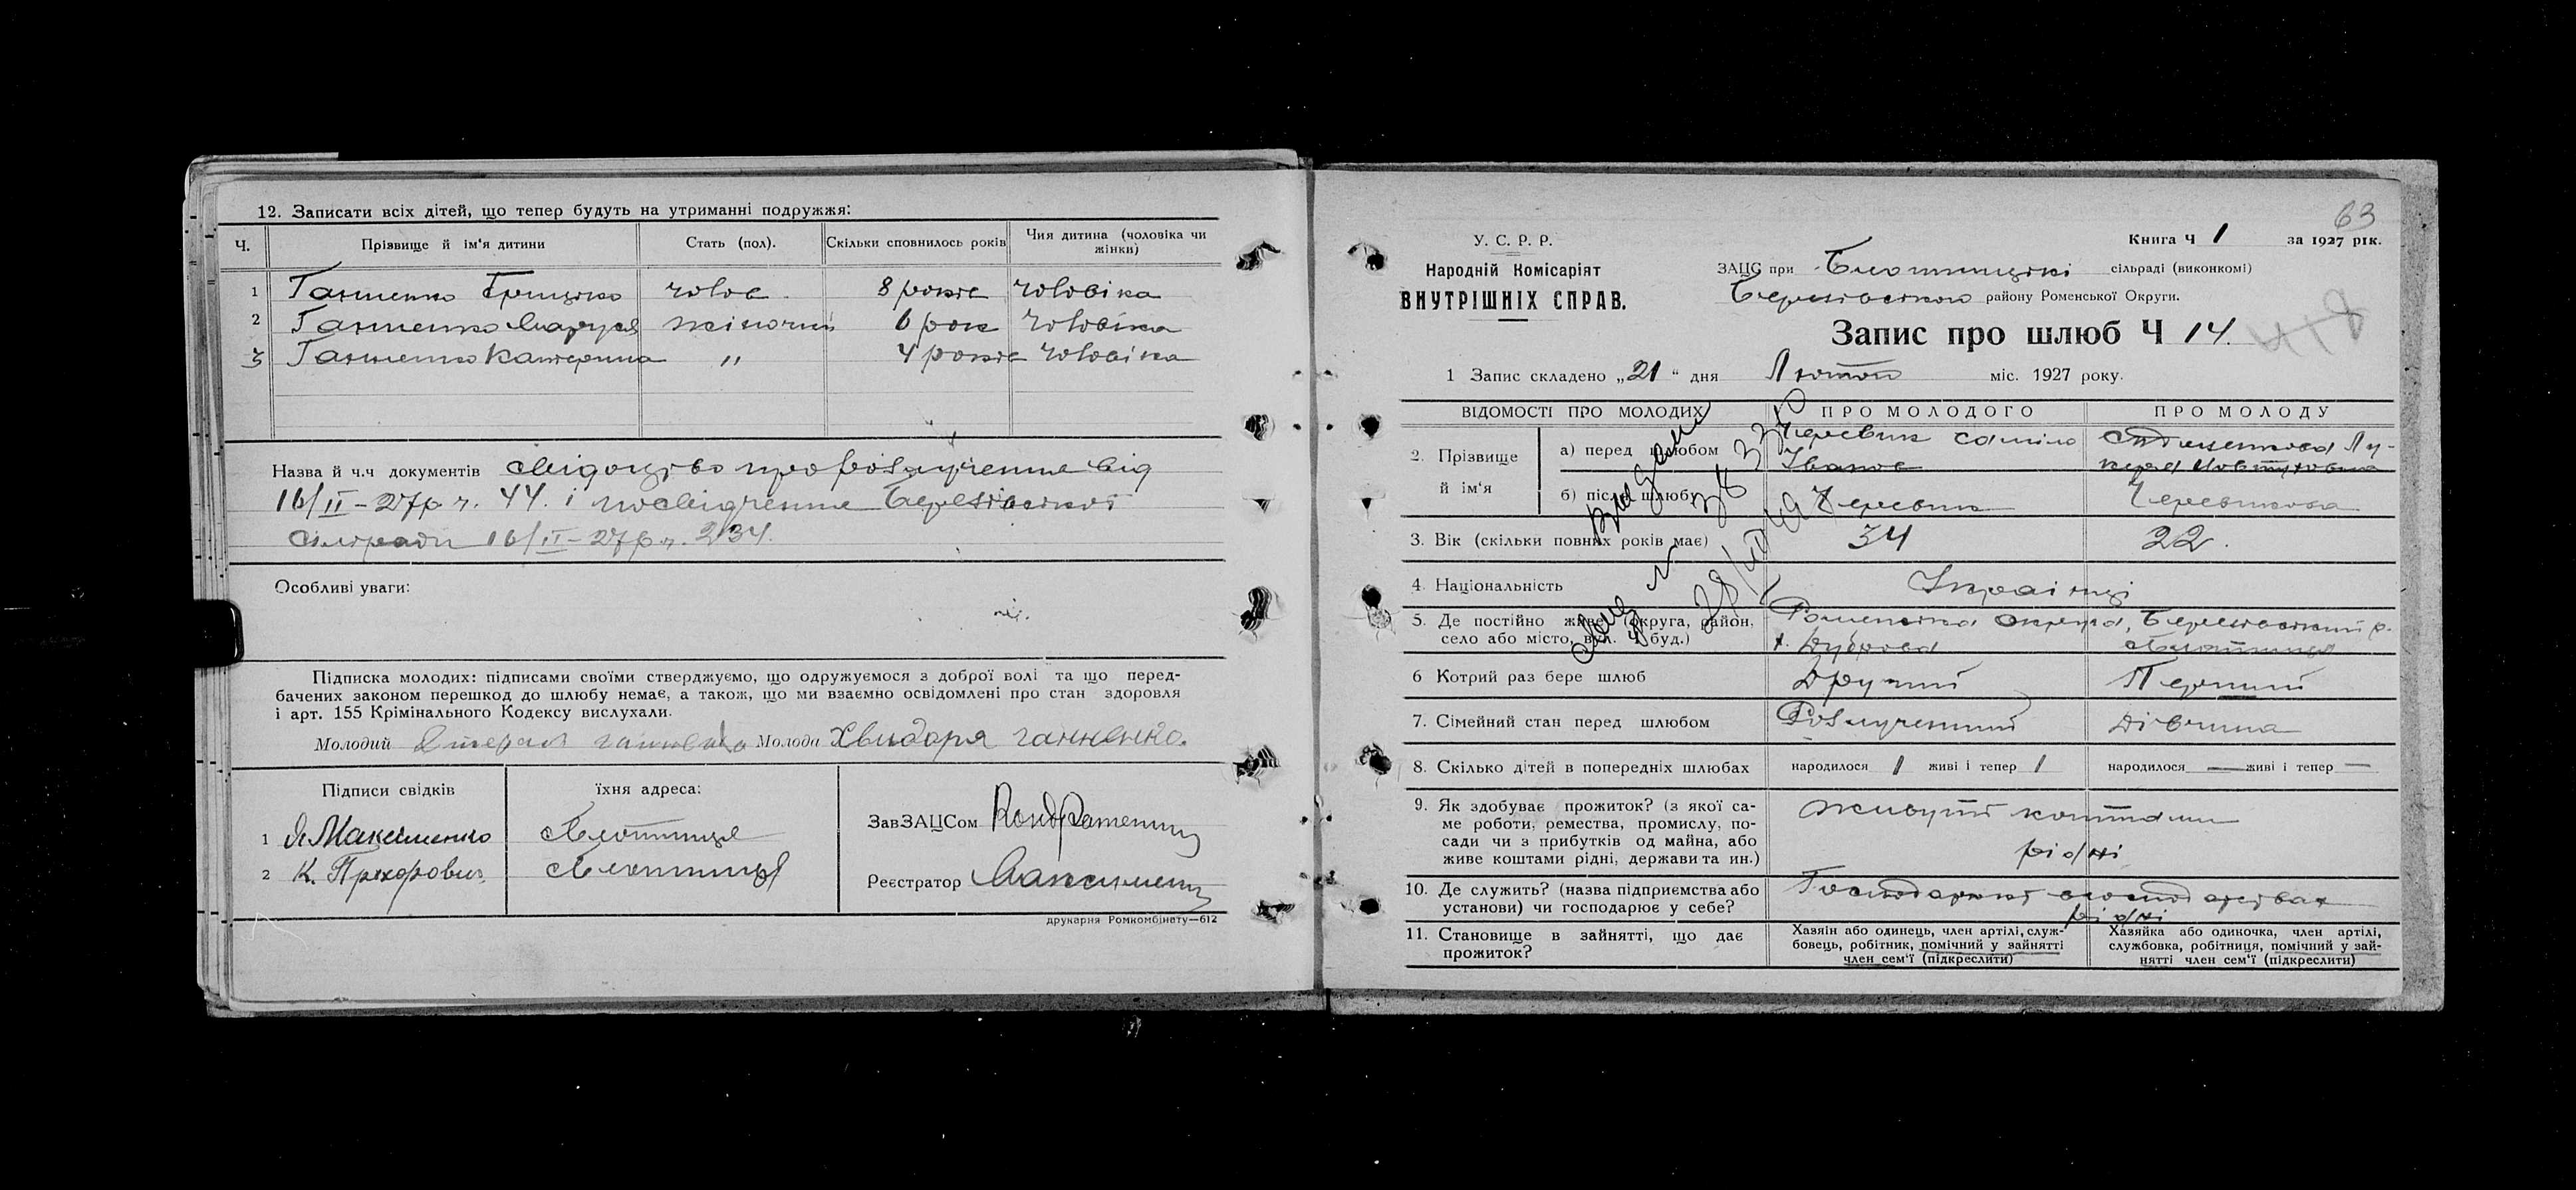 12. Записати всіх дітей, що тепер будуть на утриманні подружжя:
Ч. Прізвище й ім'я дитини Стать (пол). Скільки сповнилось років Чия дитина (чоловіка чи жінки)
1 Ганненко Грицько чолов. 8 років чоловіка
2 Ганненко Маруся жіночий 6 рок чоловіка
3 Ганненко Катерина " 4 років чоловіка
Назва й ч.ч документів свідоцтво про розлучення від
16/II-27р ч. 44. і посвідчення Березівської
сільради 16/II-27р ч. 234.
Особливі уваги:
Підписка молодих: підписами своїми стверджуємо, що одружуємося з доброї волі та що перед-
бачених законом перешкод до шлюбу немає, а також, що ми взаємно освідомлені про стан здоровля
і арт. 155 Крімінального Кодексу вислухали.
Молодий Молода Хвидоря ганненко.
Підписи свідків їхня адреса:
1 Максименко Слотниця
2 К. Прохорович
ЗавЗАЦСом
Реєстратор Максименко
друкарня Ромкомбінату—612
63
У. С. Р. Р.
Народній Комісаріят
ВНУТРІШНІХ СПРАВ.
Книга Ч 1 за 1927 рік.
ЗАЦС при сільраді (виконкомі)
Березівського району Роменської Округи.
Запис про шлюб Ч 14.
1 Запис складено „21“ дня Лютого міс. 1927 року.
ВІДОМОСТІ ПРО МОЛОДИХ ПРО МОЛОДОГО ПРО МОЛОДУ
2. Прізвище й ім'я
а) перед шлюбом Черевик Іванов
б) після шлюбу Черевик Черевикова
3. Вік (скільки повних років має) 34 22.
4. Національність Українці
5. Де постійно живе (округа, район, Роменська округа, Березівський р.
село або місто, вул. Ч буд.) х. Дуброва
6 Котрий раз бере шлюб Другий Перший
7. Сімейний стан перед шлюбом Розлучений Дівчина
8. Скілько дітей в попередніх шлюбах народилося 1 живі і тепер 1 народилося — живі і тепер —
9. Як здобуває прожиток? (з якої са-
ме роботи, ремества, промислу, по-
сади чи з прибутків од майна, або
живе коштами рідні, держави та ин.)
Живуть коштами
рідні
10. Де служить? (назва підприємства або
установи) чи господарює у себе?
рідні
11. Становище в зайнятті, що дає
прожиток?
Хазяїн або одинець, член артілі, служ-
бовець, робітник, помічний у зайнятті
член сем'ї (підкреслити)
Хазяйка або одиночка, член артілі,
службовка, робітниця, помічний у зай-
нятті член сем'ї (підкреслити)